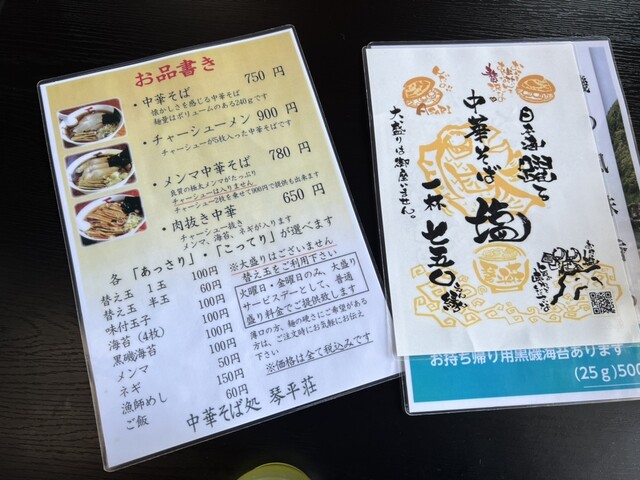 お品書き
・中華そば 750 円
懐かしさを感じる中華そば
麺量はボリュームのある240gです
・チャーシューメン 900 円
チャーシューが5枚入った中華そばです
・メンマ中華そば 780 円
良質の極太メンマがたっぷり
チャーシューは入りません
チャーシュー2枚を乗せて900円で提供も出来ます
・肉抜き中華 650 円
チャーシュー抜き
メンマ、海苔、ネギが入ります
各 「あっさり」・「こってり」が選べます
替え玉 1玉 100円
替え玉 半玉 60円
味付玉子 100円
海苔(4枚) 100円
黒磯海苔 100円
メンマ 100円
ネギ 50円
漁師めし 150円
ご飯 60円
※大盛りはございません
替え玉をご利用下さい
火曜日・金曜日のみ、大盛り
サービスデーとして、普通
盛り料金でご提供致します
薄口の方、麺の硬さにご希望がある
方は、ご注文時にお気軽にお伝え
下さい
※価格は全て税込みです
中華そば処 琴平荘
日本海躍る
塩
中華そば
一杯 七五〇円
大盛りは御座いません。
お持ち帰り用黒磯海苔あります
(25g)500